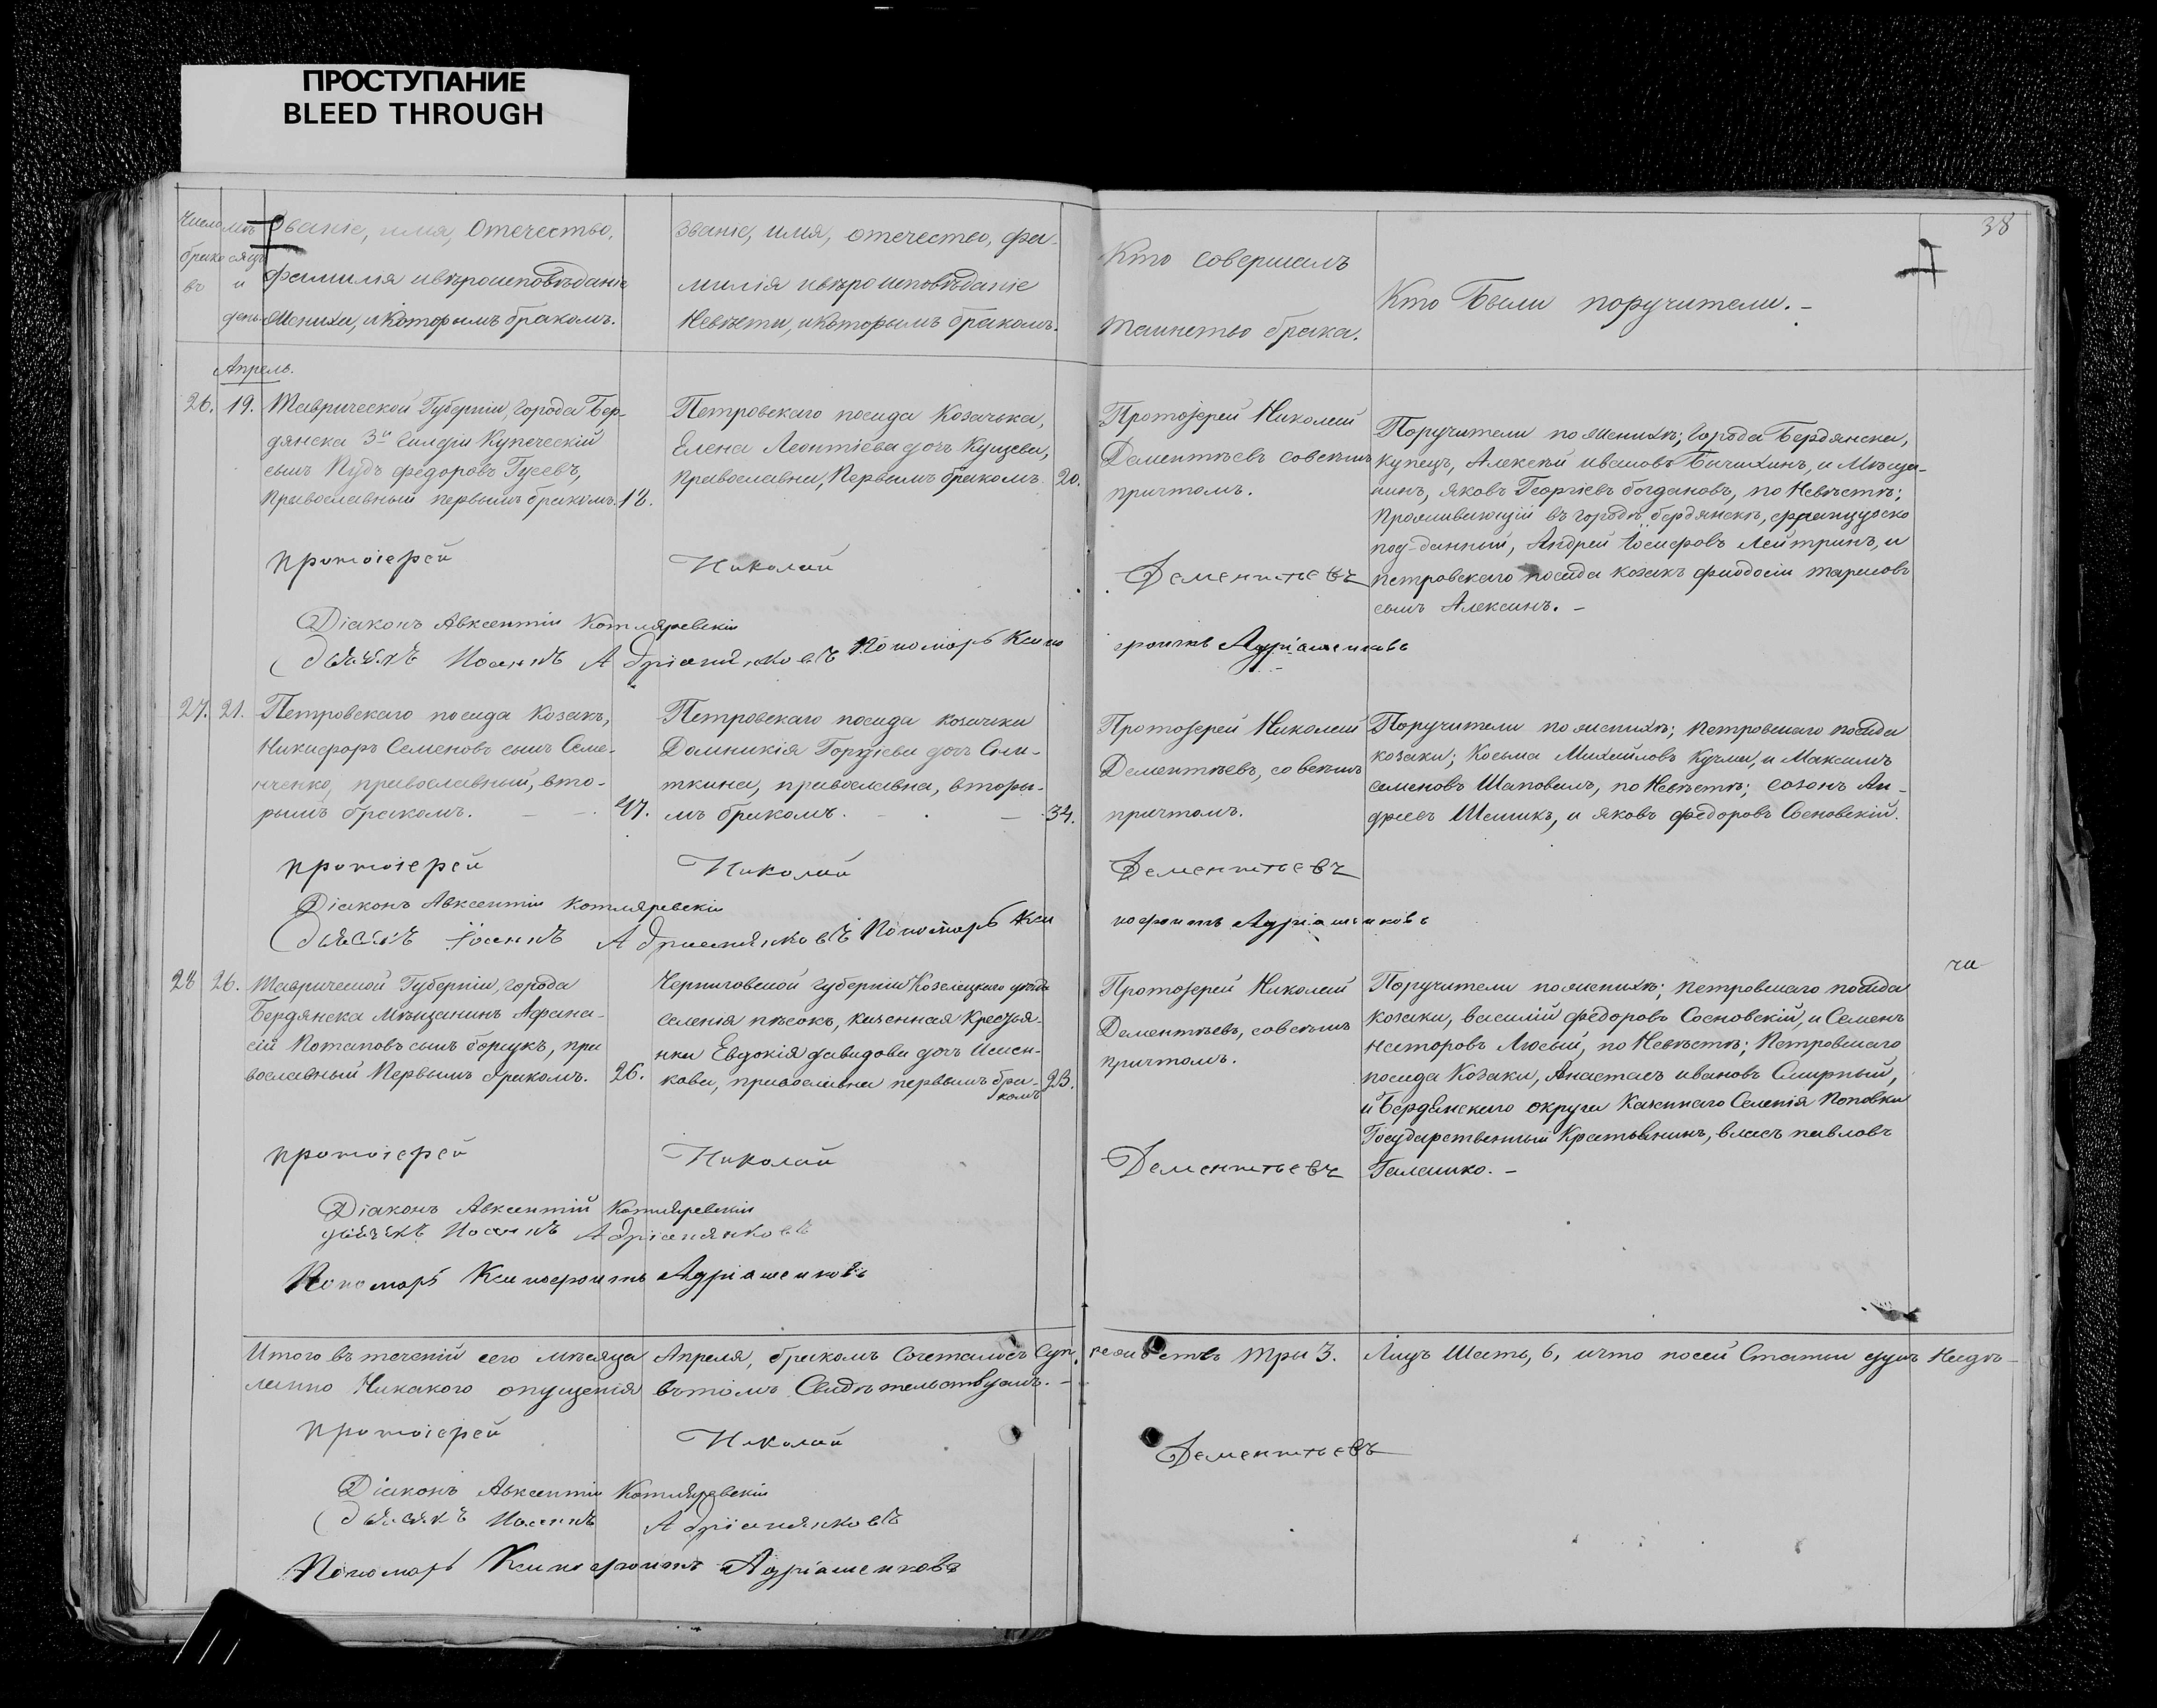 ПРОСТУПАНИЕ
BLEED THROUGH
38
Число браковъ
Мѣсяцъ и день
Званіе, имя, Отечество,
фамилія ивѣроисповѣданіе
Жениха, икоторымъ бракомъ.
Званіе, имя, отечество, фа-
милія ивѣроисповѣданіе
Невѣсты, икоторымъ бракомъ.
Кто совершалъ
таинство брака.
Кто Были поручители.
Апрель.
26. 19.
Таврической Губерніи, города Бер-
дянска 3й Гилдіи Купеческій
сынъ Пудъ Федоровъ Гусевъ,
Православный первымъ бракомъ. 18.
Петровскаго посада Козачька,
Елена Леонтіева дочь Куцева,
Православна, Первымъ бракомъ. 20.
Протоіерей Николай
Дементьевъ совсѣмъ
причтомъ.
Поручители пожениху; города Бердянска,
купецъ, Алексѣй ивановъ Бычихинъ, и Мѣща-
нинъ, Яковъ Георгіевъ богдановъ, по Невѣстѣ;
Проживающій въ городѣ бердянскѣ, французско
под-данный, Андрей Іосифовъ Лейтринъ, и
петровскаго посада козакъ феодосій тарасовъ
сынъ Алексинъ.
протоіерей Николай Дементьевъ
Діаконъ Авксентій Котляревскій
дьячекъ Иоаннъ Адріаненковъ Пономарь Ксено
фонтъ Адріаненковъ
27. 21.
Петровскаго посада Козакъ,
Никифоръ Семеновъ сынъ Семе-
нченко, православный, вто-
рымъ бракомъ. 47.
Петровскаго посада козачки
Домникія Гордіева дочь Сли-
ткина, православна, вторы-
мъ бракомъ. 34.
Протоіерей Николай
Дементьевъ, совсѣмъ
причтомъ.
Поручители пожениху; петровскаго посада
козаки; Косьма Михайловъ Кучма, и Максимъ
семеновъ Шаповалъ, по Невѣстѣ; созонъ Ан-
дреевъ Шешикъ, и яковъ федоровъ Сосновскій.
протоіерей Николай Дементьевъ
Діаконъ Авксентій Котляревскій
дьячекъ Іоаннъ Адріаненковъ Пономарь Ксе
нофонтъ Адріаненковъ
28 26.
Таврической Губерніи, города
Бердянска Мѣщанинъ Афана-
сій Потаповъ сынъ борщукъ, пра
вославный Первымъ бракомъ. 26.
Черниговской губерніи Козелецкаго уѣзда
селенія пѣсокъ, казенная Кресья-
нка Евдокія давидова дочь Исаен-
кова, православна первымъ бра-
комъ 23.
Протоіерей Николай
Дементьевъ, совсѣмъ
причтомъ.
Поручители пожениху; петровскаго посада
козаки, василій федоровъ Сосновскій, и Семенъ
несторовъ Лысый, по Невѣстѣ; Петровскаго
посада Козаки, Анастасъ ивановъ Смирный,
и Бердянскаго округа Казеннаго Селенія Поповки
Государственный Крестьянинъ, власъ павловъ
Галашко.
протоіерей Николай Дементьевъ
Діаконъ Авксентій Котляревскій
дьячекъ Иоаннъ Адріаненковъ
Пономарь Ксенофонтъ Адріаненковъ
Итого въ теченій сего мѣсяца Апреля, бракомъ Сочеталось Суп ружествъ три 3. Лицъ Шесть, 6, ичто посей Статьи
ленно Никакого опущенія вътомъ Свидѣтельствуемъ.
протоіерей Николай Дементьевъ
Діаконъ Авксентій Котляревскій
дьячекъ Иоаннъ Адріаненковъ
Пономарь Ксенофонтъ Адріаненковъ